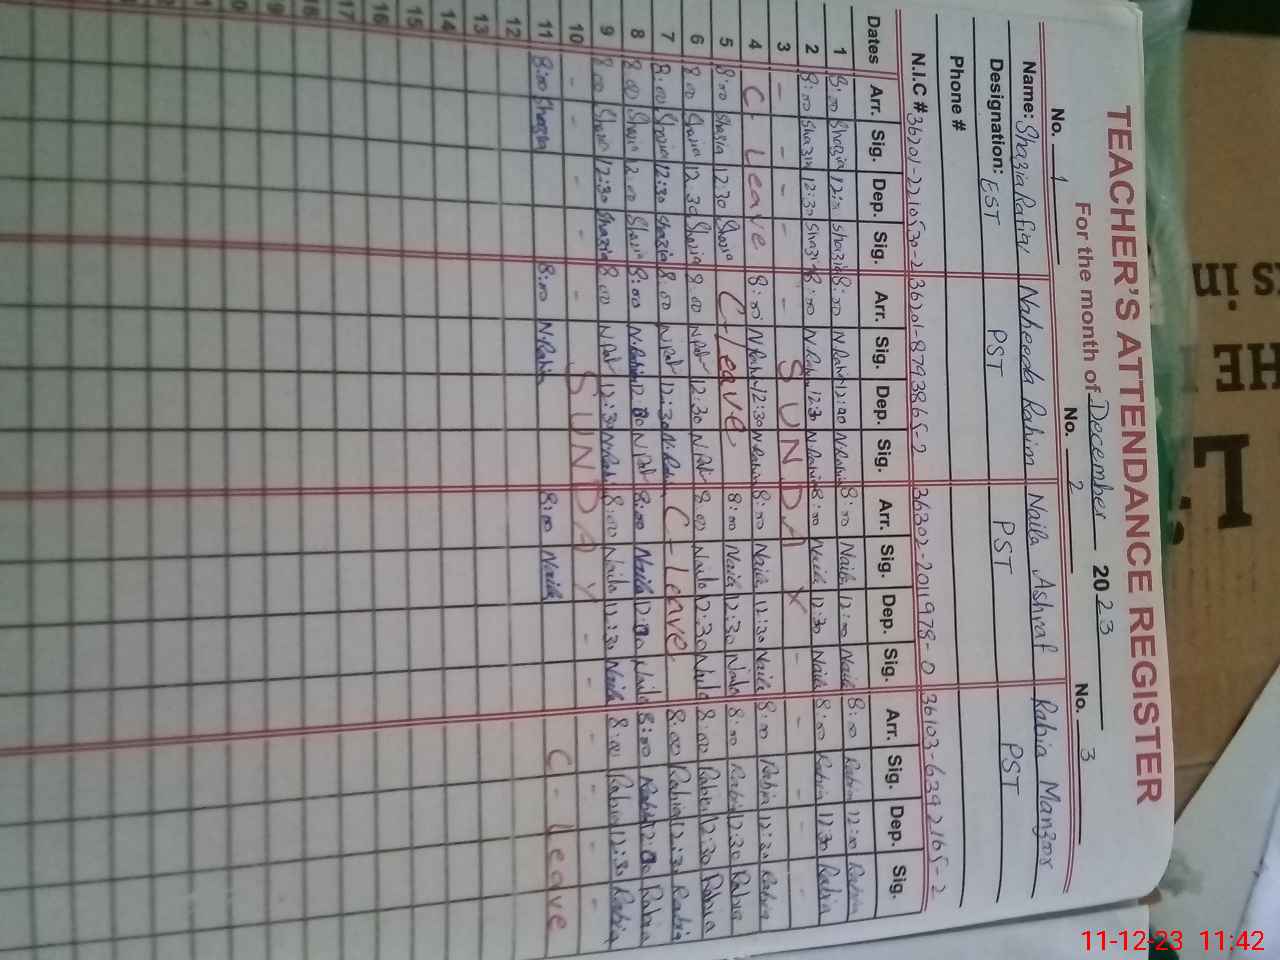 TEACHER'S ATTENDANCE REGISTER
For the month of December 2023
No. 1 No. 2 No. 3
Name: Shazia Naheeda Rahim Naila Ashraf Rabia Manzoor
Designation: EST PST PST PST
Phone #
N.I.C # 36201-8793865-2 36302-2011978-0 36103-6392165-2
Dates Arr. Sig. Dep. Sig. Arr. Sig. Dep. Sig. Arr. Sig. Dep. Sig. Arr. Sig. Dep. Sig.
1 8:00 Shazia 12:00 Shazia 8:00 N.Rahim 12:00 N.Rahim 8:00 Naila 12:00 Naila 8:00 Rabia 12:00 Rabia
2 8:00 Shazia 12:30 Shazia 8:00 N.Rahim 12:30 N.Rahim 8:00 Naila 12:30 Naila 8:00 Rabia 12:30 Rabia
3 - - - - - SUNDAY - - - - -
4 C. Leave 8:00 N.Rahim 12:30 N.Rahim 8:00 Naila 12:30 Naila 8:00 Rabia 12:30 Rabia
5 8:00 Shazia 12:30 Shazia C-leave 8:00 Naila 12:30 Naila 8:00 Rabia 12:30 Rabia
6 8:00 Shazia 12:30 Shazia 8:00 12:30 8:00 Naila 12:30 Naila 8:00 Rabia 12:30 Rabia
7 8:00 Shazia 12:30 Shazia 8:00 12:30 N.Rahim C-leave 8:00 Rabia 12:30 Rabia
8 8:00 Shazia 12:00 Shazia 8:00 N.Rahim 12:00 8:00 Naila 12:00 Naila 8:00 Rabia 12:00 Rabia
9 8:00 Shazia 12:30 Shazia 8:00 12:30 N.Rahim 8:00 Naila 12:30 Naila 8:00 Rabia 12:30 Rabia
10 - - - - - SUNDAY - - - - -
11 8:00 Shazia 8:00 N.Rahim 8:00 Naila C-leave
12
13
14
15
16
17
18
19
11-12-23 11:42